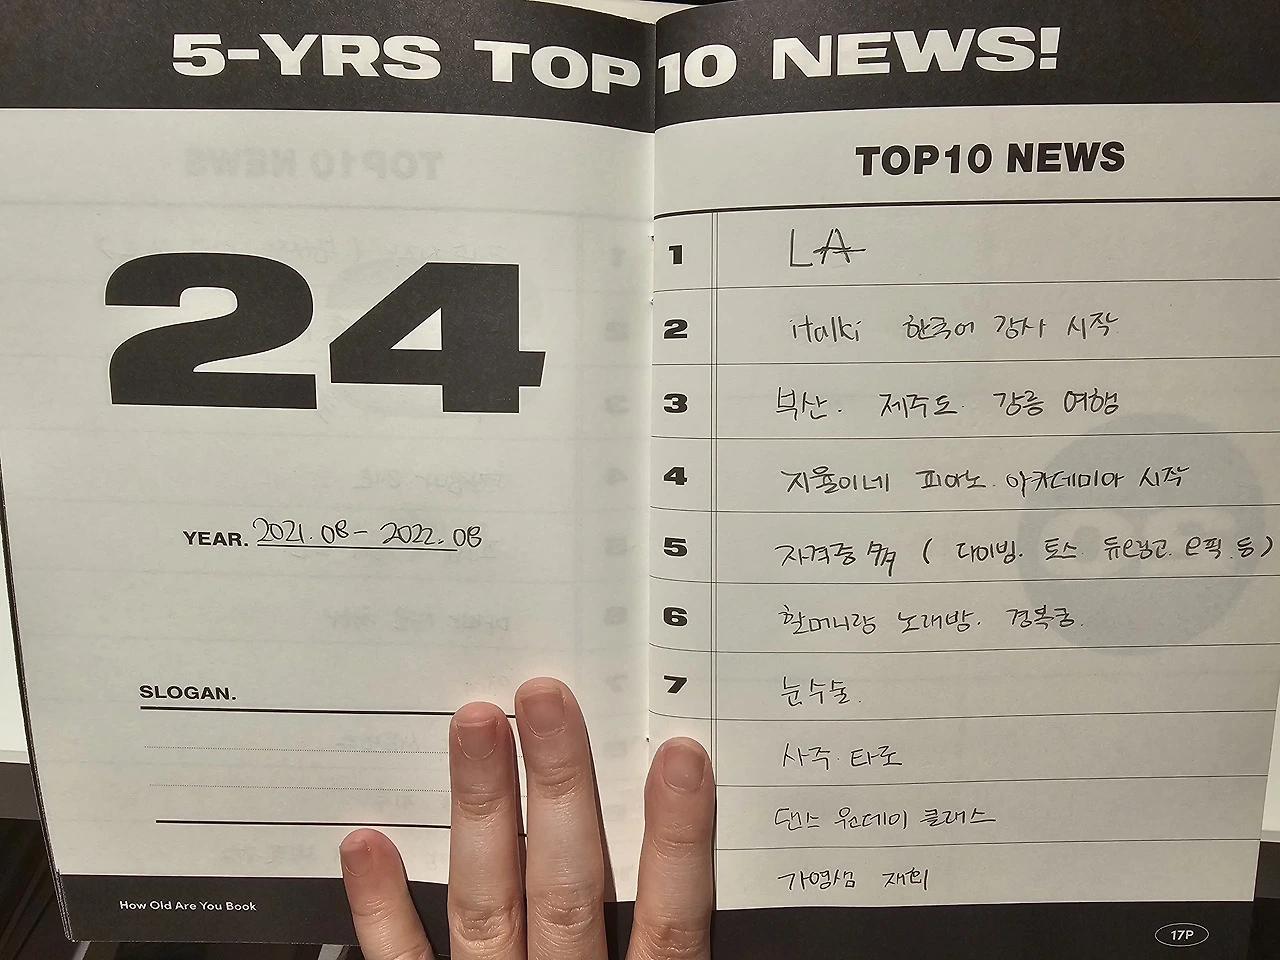 5-YRS TOP 10 NEWS!
24
YEAR. 2021.08 - 2022.08
SLOGAN.
How Old Are You Book
TOP10 NEWS
1 LA
2 italki 한국어 강사 시작
3 부산. 제주도. 강릉 여행
4 지율이네 피아노. 아카데미아 시작
5 자격증 多 ( 다이빙. 토스. 듀e링고. e픽. 등)
6 할머니랑 노래방. 경복궁.
7 눈수술.
사주. 타로
댄스 원데이 클래스
가영쌤 재회
17P